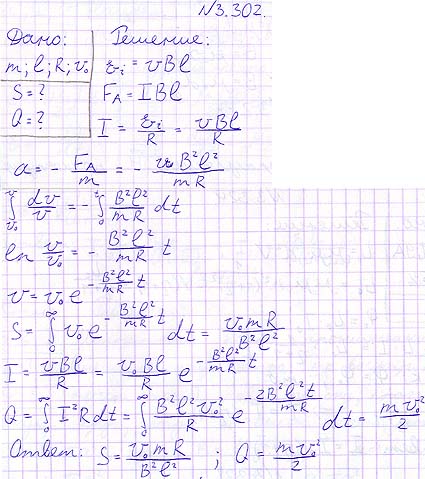 №3.302.
Дано: Решение:
m; l; R; v₀ ℰᵢ = vBl
S = ? F_A = IBl
Q = ? I = ℰᵢ/R = vBl/R
a = - F_A/m = - vB²l²/mR
∫_{v₀}^{v} dv/v = - ∫_{0}^{t} B²l²/mR dt
ln v/v₀ = - B²l²/mR t
v = v₀ e^{- B²l²/mR t}
S = ∫_{0}^{∞} v₀ e^{- B²l²/mR t} dt = v₀mR/B²l²
I = vBl/R = v₀Bl/R e^{- B²l²/mR t}
Q = ∫_{0}^{∞} I²R dt = ∫_{0}^{∞} B²l²v₀²/R e^{- 2B²l²t/mR} dt = mv₀²/2
Ответ: S = v₀mR/B²l² ; Q = mv₀²/2